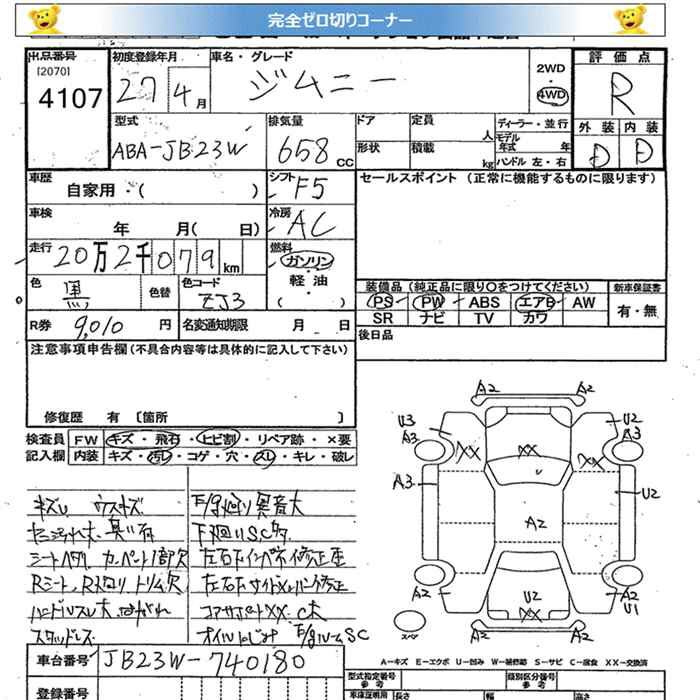 完全ゼロ切りコーナー
出品番号
[2070]
4107
初度登録年月
27 4月
車名・グレード
ジムニー
2WD
・
4WD
評価点
R
外装 内装
D D
型式
ABA-JB23W
排気量
658cc
ドア
形状
定員
人
積載
kg
ディーラー・並行
モデル年式 年
ハンドル 左・右
車歴
自家用・( )
シフト
F5
セールスポイント (正常に機能するものに限ります)
車検
年 月( 日)
冷房
AC
走行
20万2千079km
燃料
ガソリン
・
軽油
・
( )
色
黒
色替
色コード
ZJ3
装備品(純正品に限り〇をつけてください)
PS PW ABS エアB AW
SR ナビ TV カワ
新車保証書
有・無
R券
9,010円
名変通知期限 月 日
後日品
注意事項申告欄(不具合内容等は具体的に記入して下さい)
修復歴 有 [箇所 ]
検査員記入欄
FW キズ・飛石・ヒビ割・リペア跡・×要
内装 キズ・汚れ・コゲ・穴・スレ・キレ・破レ
キズU ウスキズ
シートヘタリ カーペット1部欠
スタッドレス
下廻りSC多
コアサポートXX C大
車台番号
JB23W-740180
登録番号
A2 A2
U3 A3
U2 A3
XX XX XX
A3
U2
A2
A2
U2
XX
A2 U1
スペア
A2 A2
A-キズ E-エクボ U-凹み W-補修跡 S-サビ C-腐食 XX-交換済
型式指定番号
参考
類別区分番号
参考
車庫証明用
長さ 幅 高さ